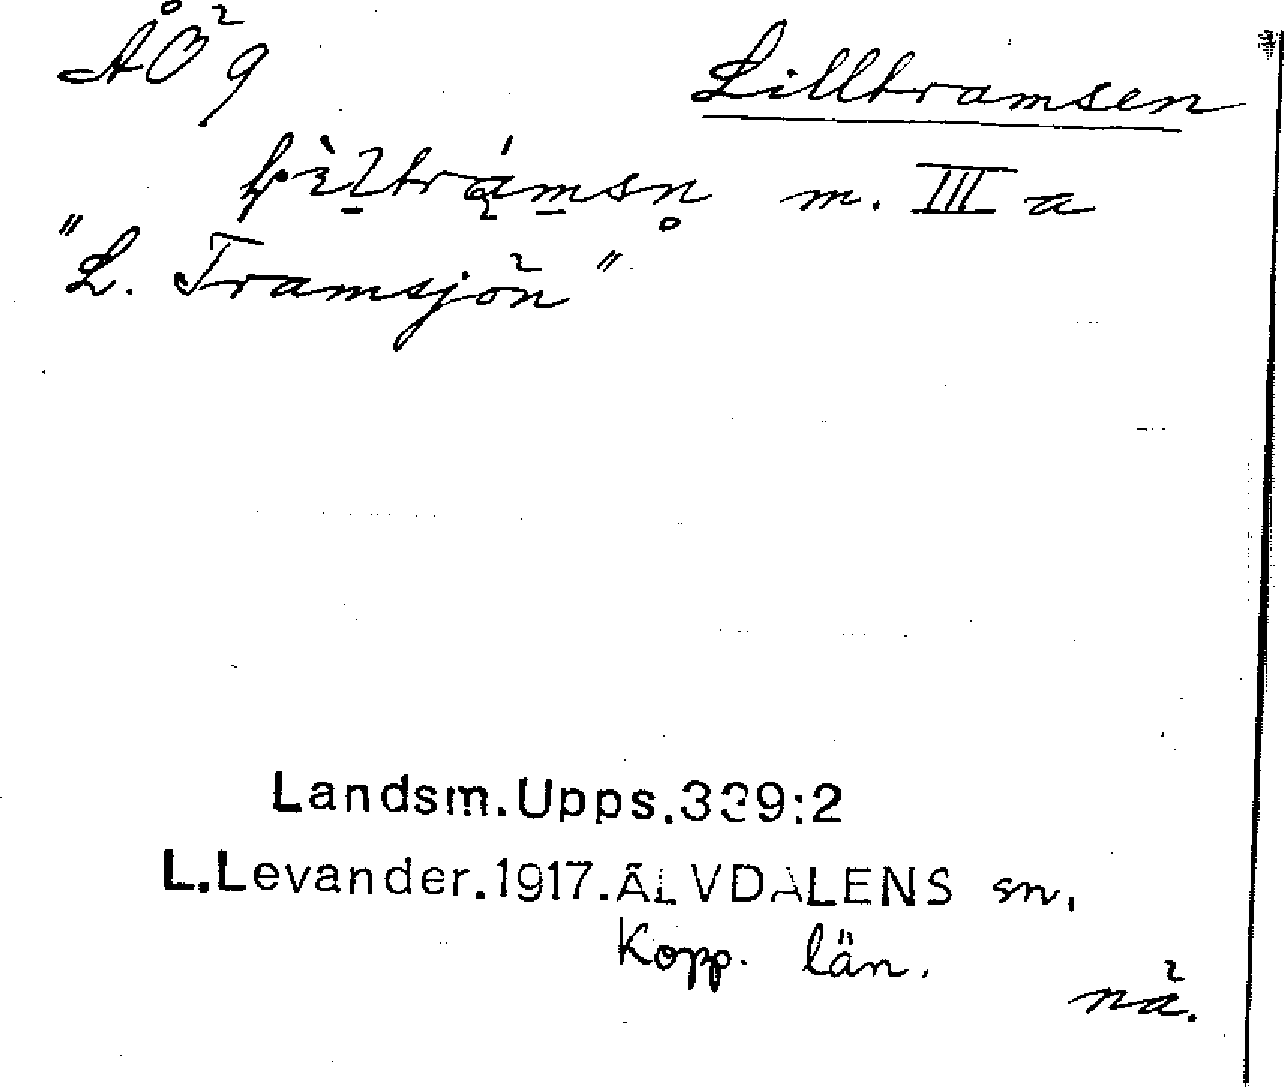 ÅÖ 9
Lilltramsen
m. III a
"L. Tramsjön"
Landsm.Upps.339:2
L.Levander.1917.ÄLVDALENS sn.
Kopp. län.
nä.